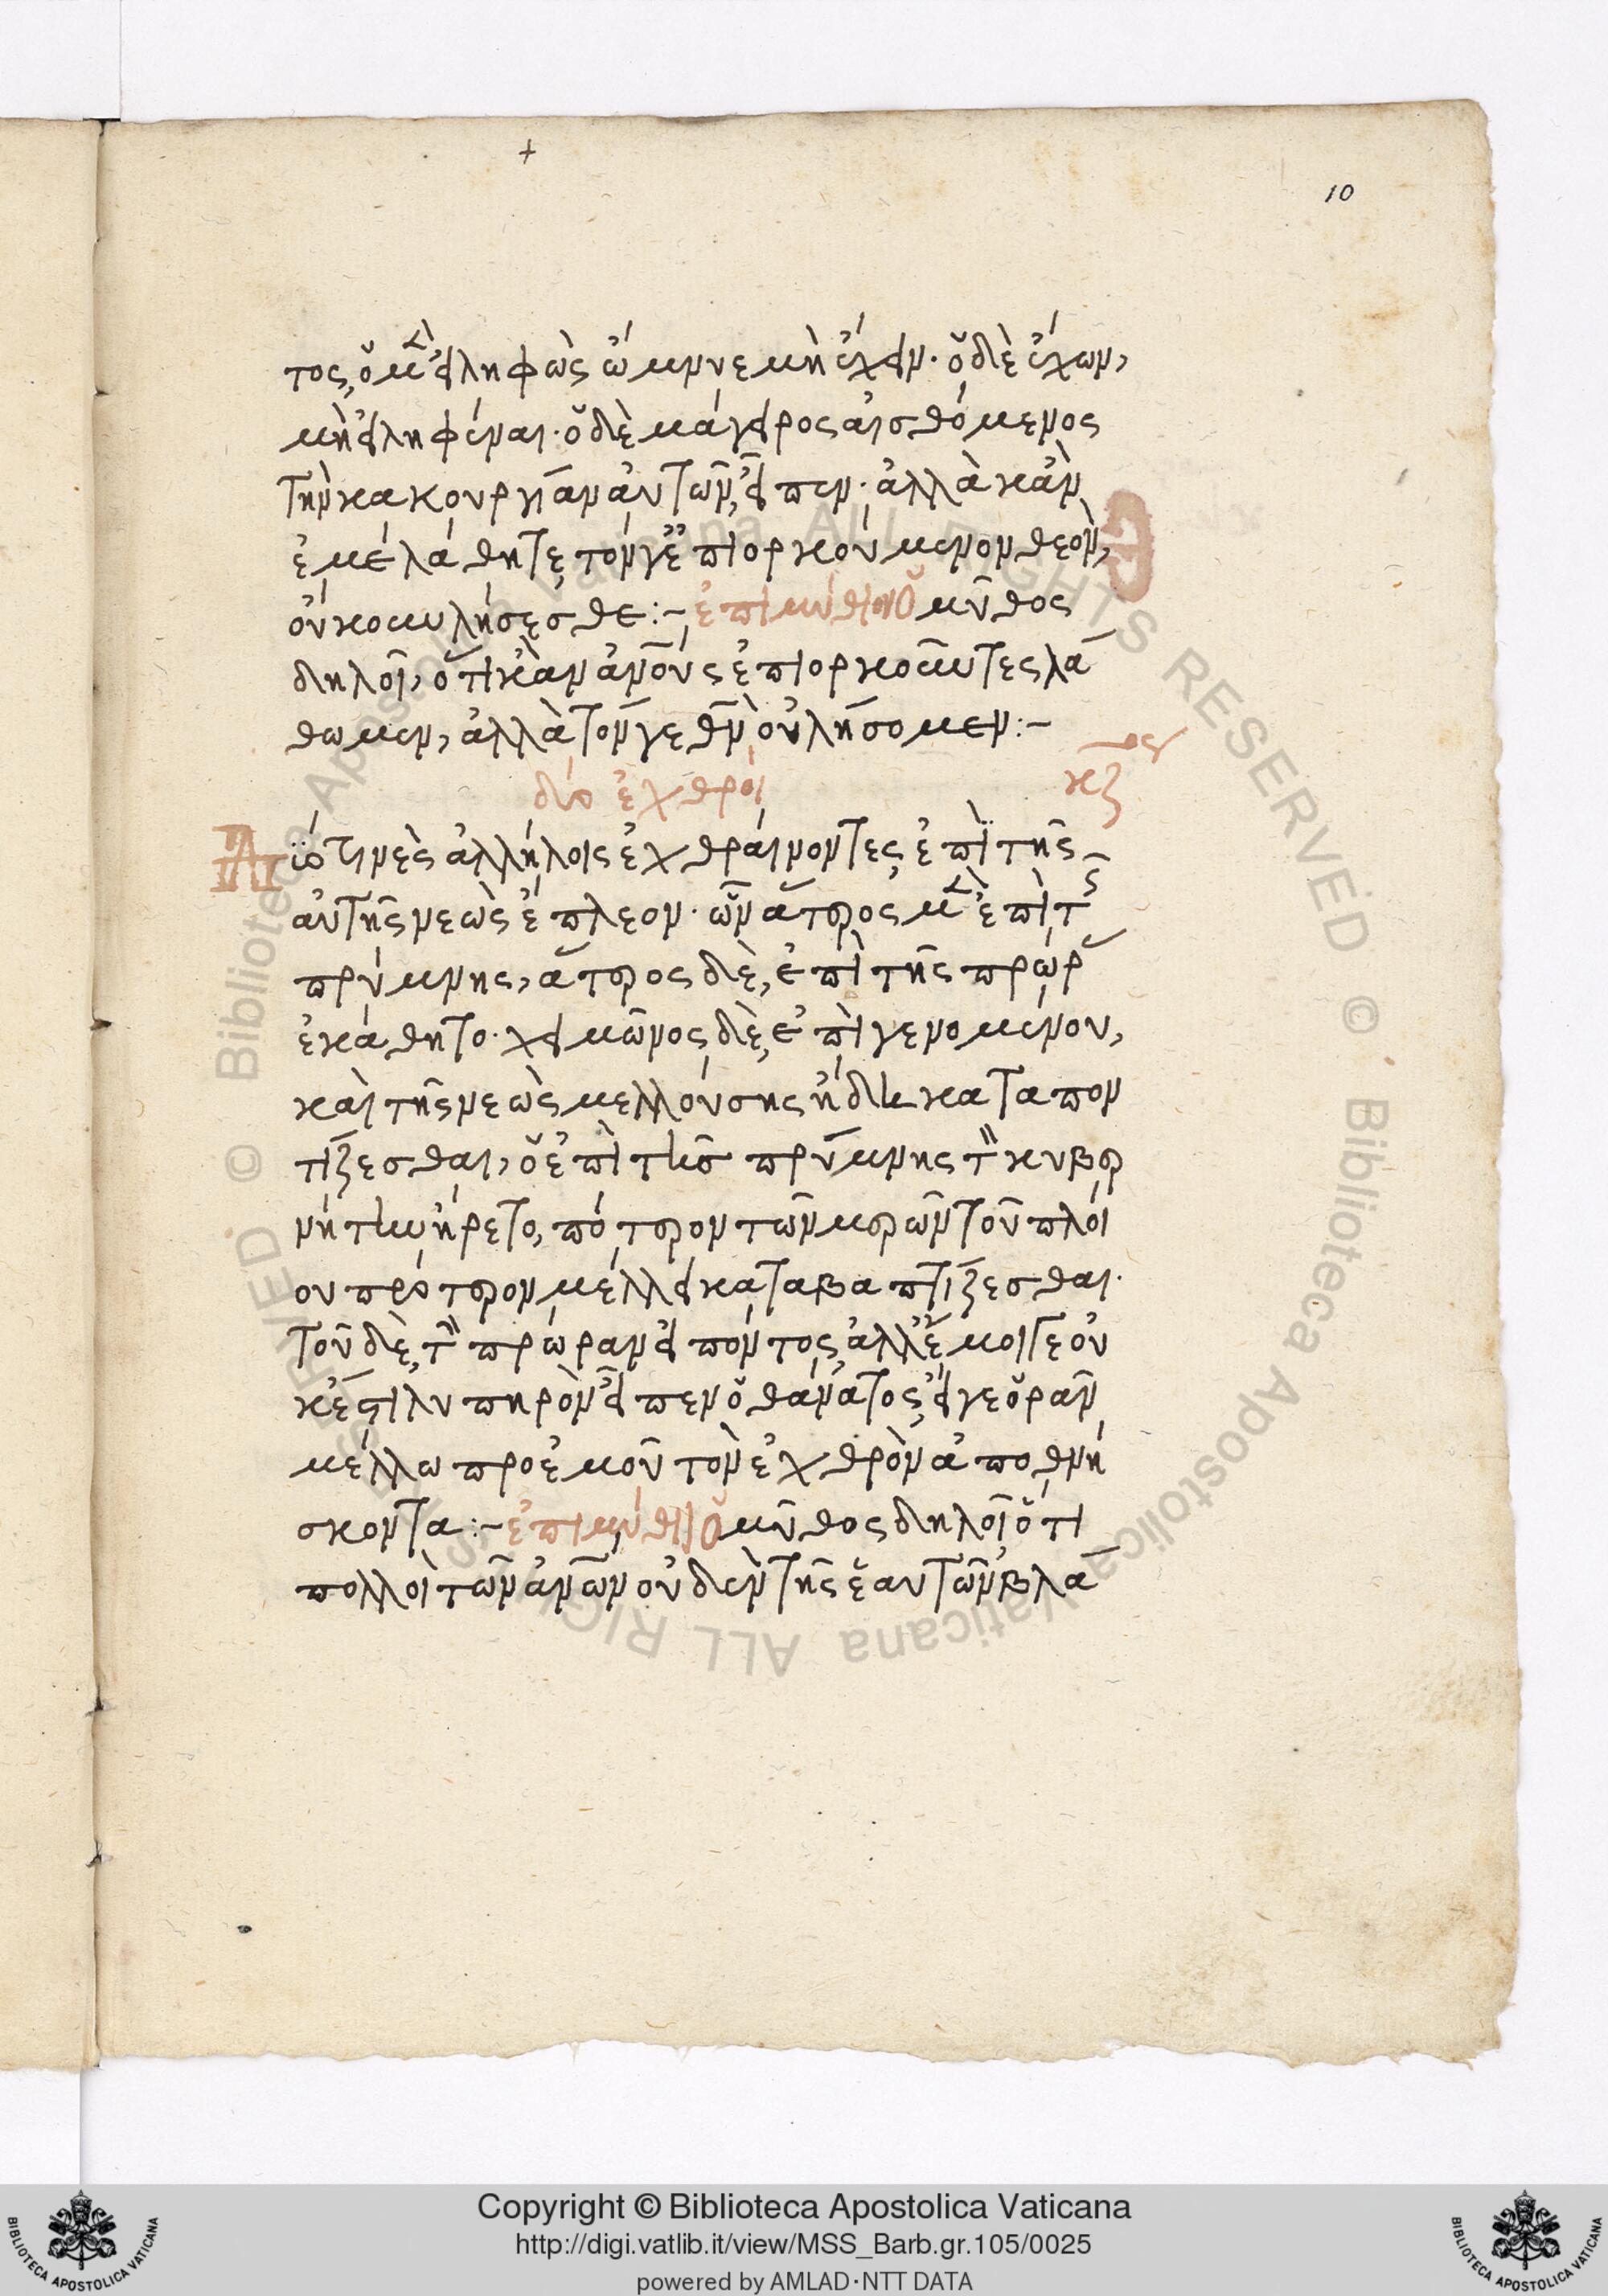 10
τος, ὁ μὲν εἰληφὼς ὤμνυε μὴ ἔχειν· ὁ δὲ ἔχων,
μὴ εἰληφέναι· ὁ δὲ μάγειρος αἰσθόμενος
τὴν κακουργίαν αὐτῶν, εἶπεν· ἀλλὰ κἂν
ἐμὲ λάθητε, τόν γε ἐπιορκούμενον θεόν,
οὐκ οὖν λήσεσθε:- ἐπιμύθιον Ὁ μῦθος
δηλοῖ, ὅτι κἂν ἀνους ἐπιορκοῦντες λά
θωμεν, ἀλλὰ τόν γε θν οὐ λήσομεν:-
δύο ἐχθροί
κζ
Δύο τινὲς ἀλλήλοις ἐχθραίνοντες, ἐπὶ τῆς
αὐτῆς νεὼς ἔπλεον· ὧν ἅτερος μὲν ἐπὶ τῆς
πρύμνης, ἅτερος δὲ, ἐπὶ τῆς πρώρας
ἐκάθητο· χειμῶνος δὲ, ἐπιγενομένου,
καὶ τῆς νεὼς μελλούσης ἤδη καταπον
τίζεσθαι, ὁ ἐπὶ τῆς πρύμνης τὸν κυβερ
νήτην ἤρετο, πότερον τῶν μερῶν τοῦ πλοί
ου πρότερον μέλλει καταβαπτίζεσθαι·
τοῦ δὲ, τὴν πρῶραν εἰπόντος, ἀλλ' ἔμοιγε οὐ
κέστι λυπηρὸν εἶπεν ὁ θάνατος, εἴγε ὁρᾶν
μέλλω προ ἐμοῦ τὸν ἐχθρὸν ἀποθνή
σκοντα:- ἐπιμύθιον Ὁ μῦθος δηλοῖ ὅτι
πολλοὶ τῶν ἀνων οὐδὲν τῆς ἑαυτῶν βλά
Copyright © Biblioteca Apostolica Vaticana
http://digi.vatlib.it/view/MSS_Barb.gr.105/0025
powered by AMLAD·NTT DATA
BIBLIOTECA APOSTOLICA VATICANA
BIBLIOTECA APOSTOLICA VATICANA